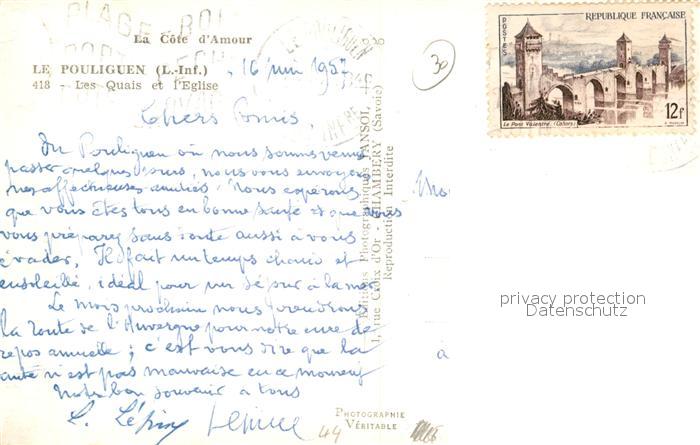 La Côte d'Amour
LE POULIGUEN (L.-Inf.)
418 - Les Quais et l'Eglise
16 juin 1957
30
Chers Amis,
Du Pouliguen où nous sommes venus
passer quelques jours, nous vous envoyons
nos affectueuses amitiés. Nous espérons
que vous êtes tous en bonne santé et que vous
vous préparez sans doute aussi à vous
évader. Il fait un temps chaud et
ensoleillé, idéal pour un séjour à la mer
Le mois prochain nous prendrons
la route de l'Auvergne pour notre cure de
repos annuelle ; c'est vous dire que la
santé n'est pas mauvaise en ce moment
Notre bon souvenir à tous
L. Lépine Lepine
Editions Photographiques PANSOL
1, rue Croix d'Or - CHAMBERY (Savoie)
Reproduction Interdite
PHOTOGRAPHIE
VÉRITABLE
44
à
POSTES
REPUBLIQUE FRANÇAISE
Le Pont Valentré (Cahors)
12F
privacy protection
Datenschutz